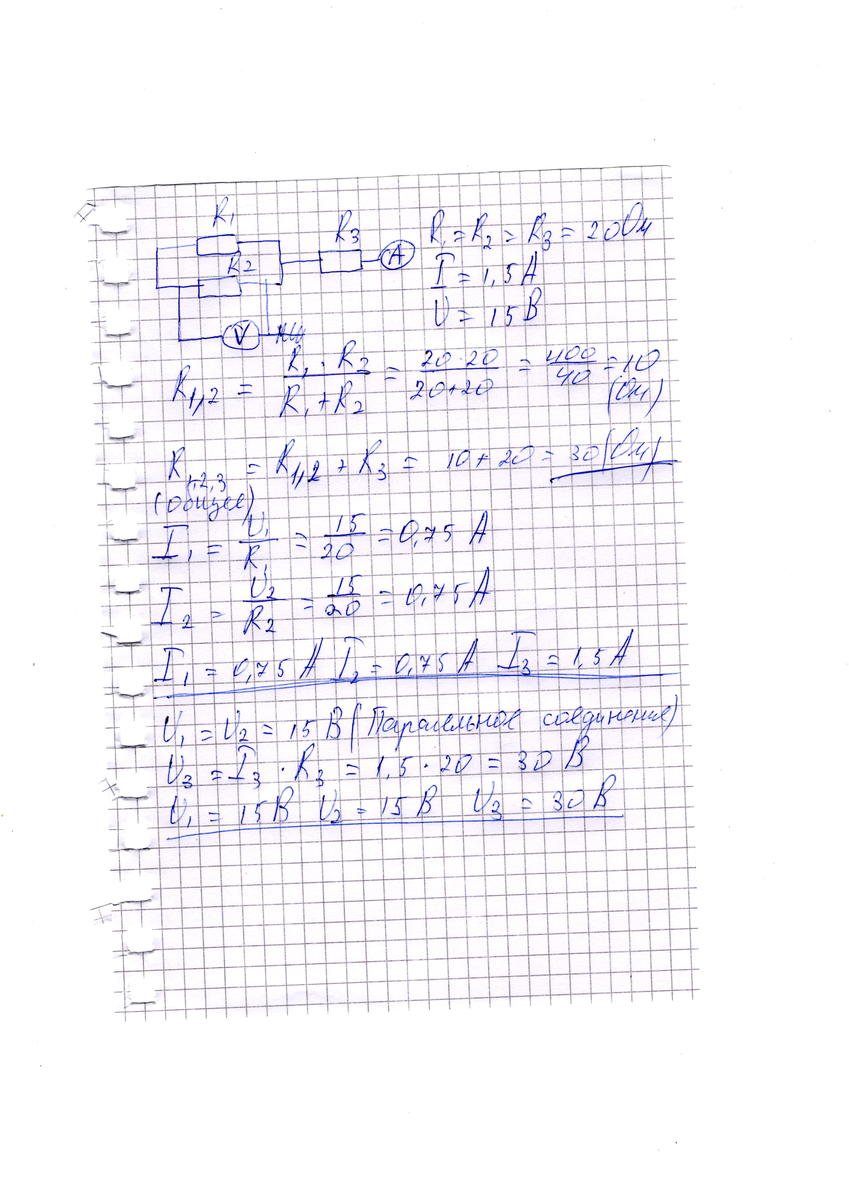 R₁
R₂
R₃
A
V
R₁ = R₂ = R₃ = 20 Ом
I = 1,5 А
U = 15 В
R₁,₂ = R₁ · R₂ / R₁ + R₂ = 20 · 20 / 20 + 20 = 400 / 40 = 10 (Ом)
R₁,₂,₃ = R₁,₂ + R₃ = 10 + 20 = 30 (Ом)
(общее)
I₁ = U₁ / R₁ = 15 / 20 = 0,75 А
I₂ = U₂ / R₂ = 15 / 20 = 0,75 А
I₁ = 0,75 А I₂ = 0,75 А I₃ = 1,5 А
U₁ = U₂ = 15 В (Паралельное соединение)
U₃ = I₃ · R₃ = 1,5 · 20 = 30 В
U₁ = 15 В U₂ = 15 В U₃ = 30 В